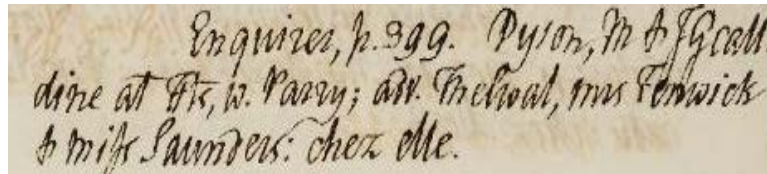 Enquirer, p. 399. Dyson, M & JG call
dine at Hts, w. Parry; adv. Thelwal, mrs Fenwick
& miss Saunders: chez elle.